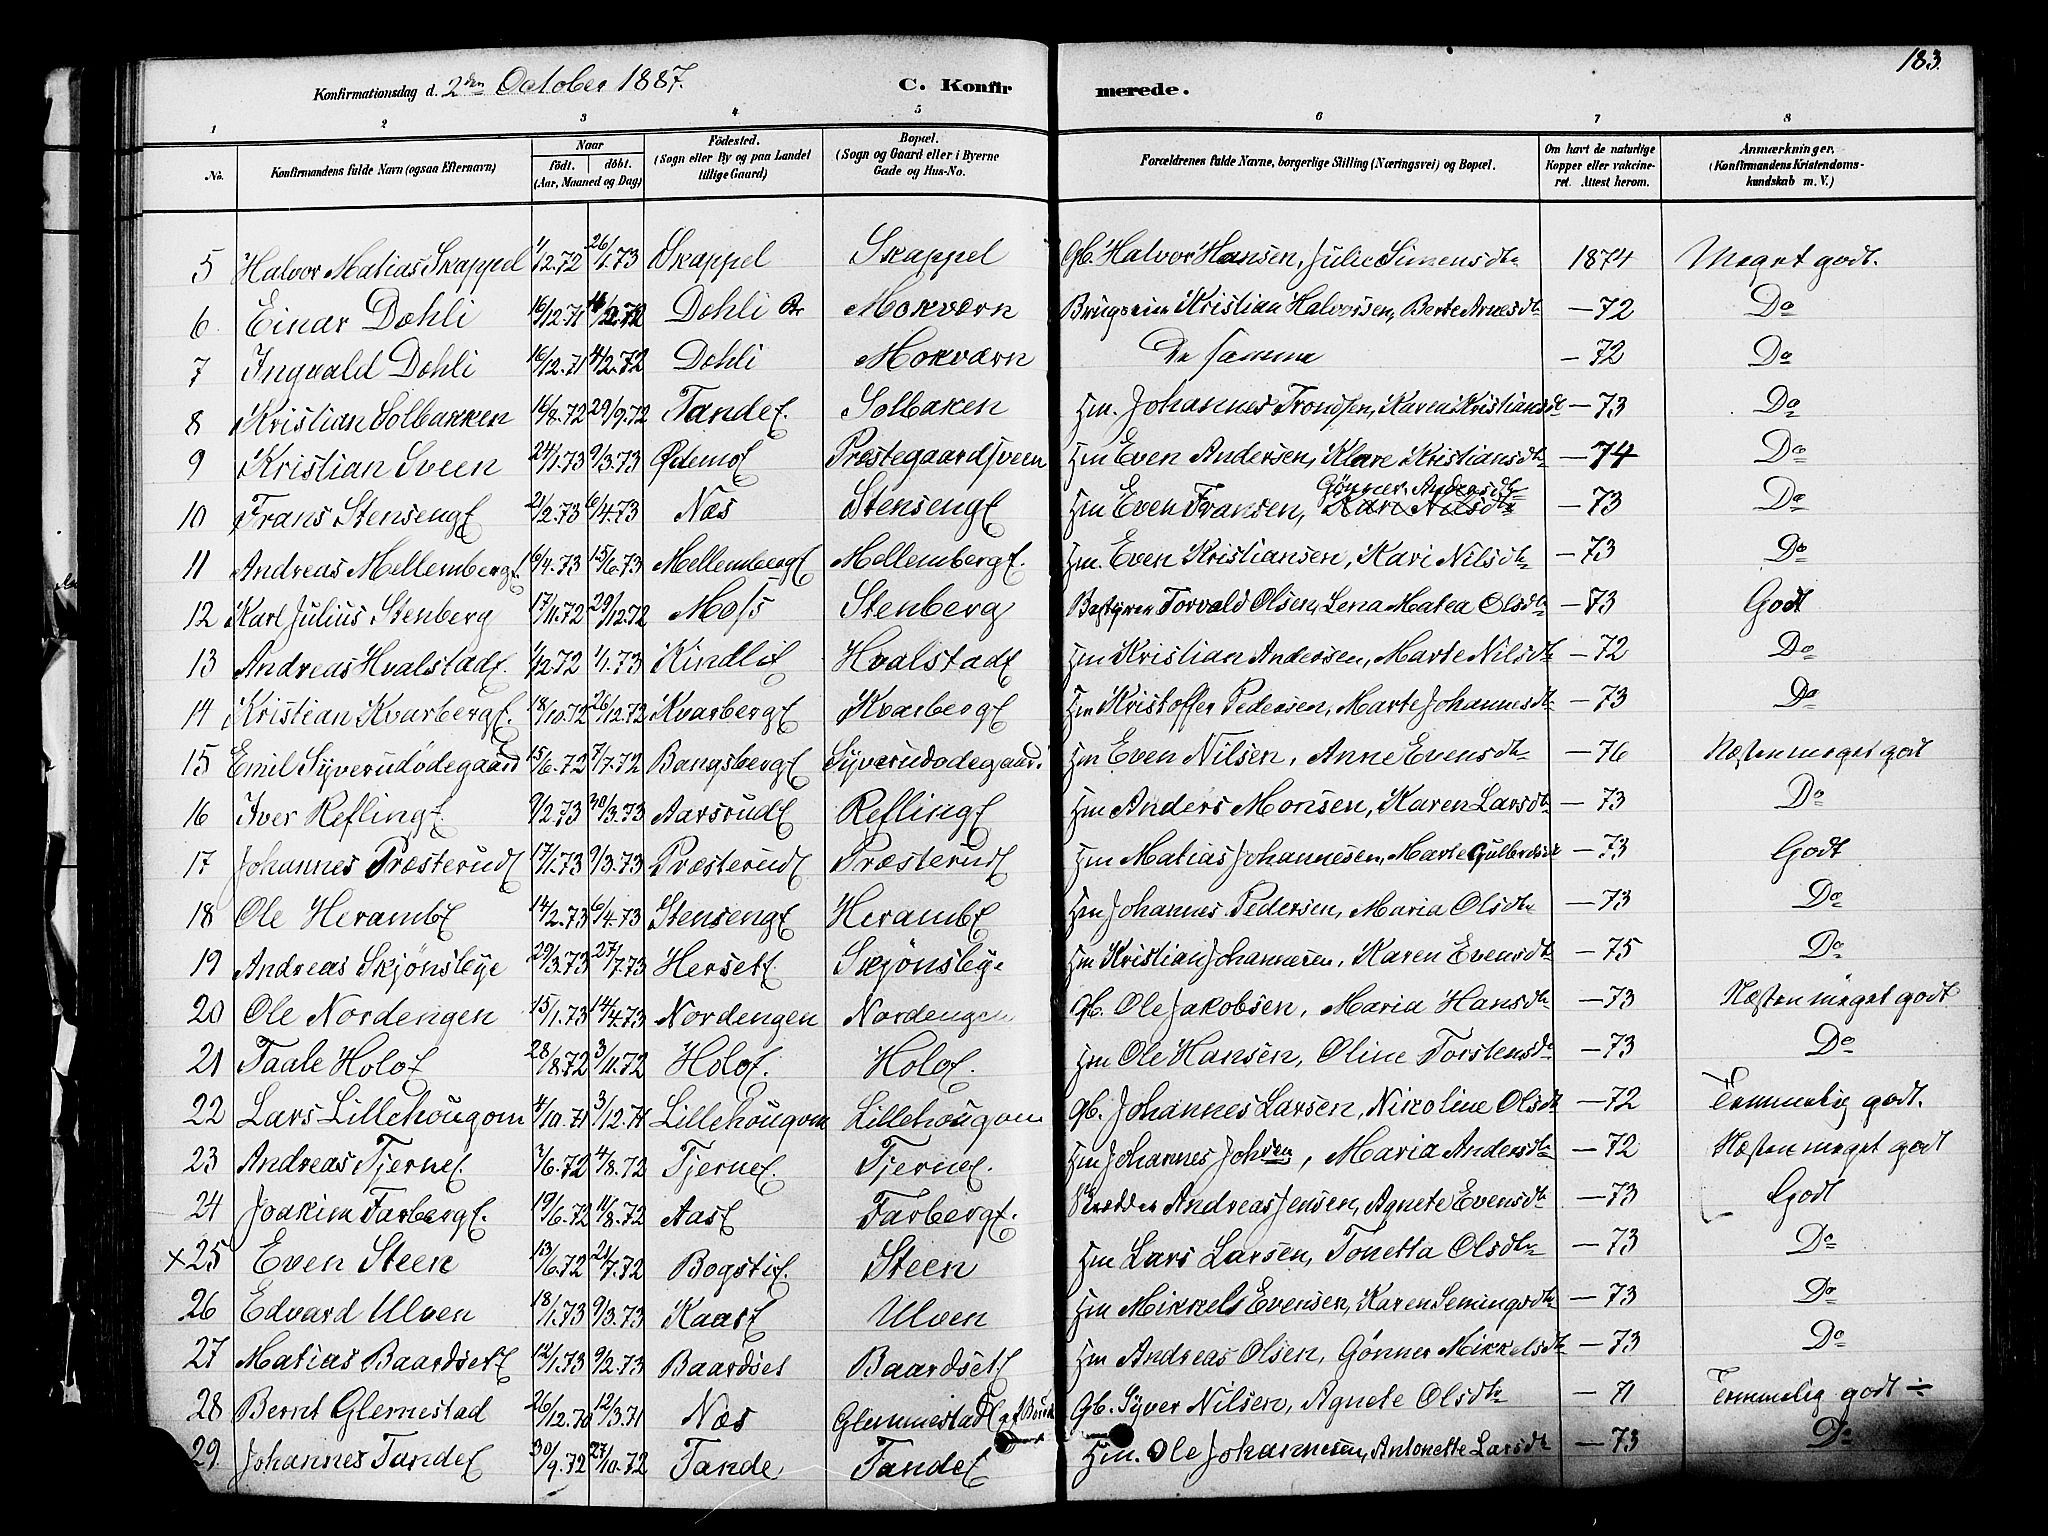 183.
Konfirmationsdag d. 2den October 1887. C. Konfirmerede.
1 2 3 4 5 6 7 8
No. Konfirmandens fulde Navn (ogsaa Efternavn) Naar födt. döbt. (Aar, Maaned og Dag) Födested. (Sogn eller By og paa Landet tillige Gaard) Bopæl. (Sogn og Gaard eller i Byerne Gade og Hus-No. Forældrenes fulde Navne, borgerlige Stilling (Næringsvei) og Bopæl. Om havt de naturlige Kopper eller vakcineret. Attest herom. Anmærkninger. (Konfirmandens Kristendomskundskab m. V.)
5 Halvor Matias Skappel 1/12.72 26/1.73 Skappel Skappel Gb. Halvor Hansen, Julie Simensdtr 1874 Meget godt.
6 Einar Dæhli 16/12.71 Dohli Mokværn Kristian Halvorsen, Berte Arnesdtr —72 Do
7 Ingvald Dohli 16/12.71 4/2.72 Dohli Mokværn De samme —72 Do
8 Kristian Solbakken 16/8.72 29/9.72 Tande Solbaken Hm. Johannes Trondsen, Karen Kristiansdtr —73 Do
9 Kristian Sveen 24/1.73 9/3.73 Prestegaardsveen Hm Even Andersen, Klare Kristiansdtr —74 Do
10 Frans Stenseng 21/2.73 6/4.73 Næs Stenseng Hm Even Fransen, Gönner Andersdtr —73 Do
11 Andreas Mellemberg 6/4.73 15/6.73 Mellemberg Mellemberg Hm. Even Kristiansen, Kari Nilsdtr —73 Do
12 Karl Julius Stenberg 17/11.72 29/12.72 Moss Stenberg Bestyrer Torvald Olsen, Lena Matea Olsdtr —73 Godt
13 Andreas Hvalstad 1/12.72 1/1.73 Kindli Hvalstad Hm Kristian Andersen, Marte Nilsdtr —72 Do
14 Kristian Kvarberg 18/10.72 26/12.72 Kvarberg Kvarberg Hm Kristoffer Pedersen, Marte Johannesdtr —73 Do
15 Emil Syverudödegaard 15/6.72 7/7.72 Bangsberg Syverudodegaard Hm Even Nilsen, Anne Evensdtr —76 Næsten meget godt
16 Iver Refling 9/2.73 30/3.73 Aarsrud Refling Hm Anders Monsen, Karen Larsdtr —73 Do
17 Johannes Præsterud 17/1.73 9/3.73 Præsterud Præsterud Hm Matias Johannesen, Marte Gulbrdsdtr —73 Godt
18 Ole Heramb 14/2.73 6/4.73 Stenseng Heramb Hm Johannes Pedersen, Maria Olsdtr —73 Do
19 Andreas Skjönsbye 29/3.73 27/7.73 Herset Skjönsbye Hm Kristian Johannesen, Karen Evensdtr —75 Do
20 Ole Nordengen 15/1.73 14/4.73 Nordengen Nordengen Gb. Ole Jakobsen, Maria Hansdtr —73 Næsten meget godt
21 Taale Holo 28/8.72 3/11.72 Holo Holo Hm Ole Hansen, Oline Torstensdtr —73 Do
22 Lars Lillehougom 4/10.71 3/12.71 Lillehougom Lillehougom Gb. Johannes Larsen, Nikoline Olsdtr —72 Temmelig godt.
23 Andreas Tjerne 3/6.72 4/8.72 Tjerne Tjerne Hm Johannes Johsen, Maria Andersdtr —72 Næsten meget godt
24 Joakim Farberg 19/6.72 11/8.72 Aas Farberg Skrædder Andreas Jensen, Agnete Evensdtr —73 Godt
×25 Even Steen 13/6.72 21/7.72 Bogsti Steen Hm Lars Larsen, Tonetta Olsdtr —73 Do
26 Edvard Ulven 18/1.73 9/3.73 Kaas Ulven Hm Mikkel Evensen, Karen Semingsdtr —73 Do
27 Matias Baardset 12/1.73 9/2.73 Baardset Baardset Hm Andreas Olsen, Gönner Mikkelsdtr —73 Do
28 Bernt Glemestad 26/12.70 12/3.71 Næs Glemmestad Gb. Syver Nilsen, Agnete Olsdtr —71 Temmelig godt ÷
29 Johannes Tande 30/9.72 27/10.72 Tande Tande Hm. Ole Johannesen, Antonette Larsdtr —73 Do